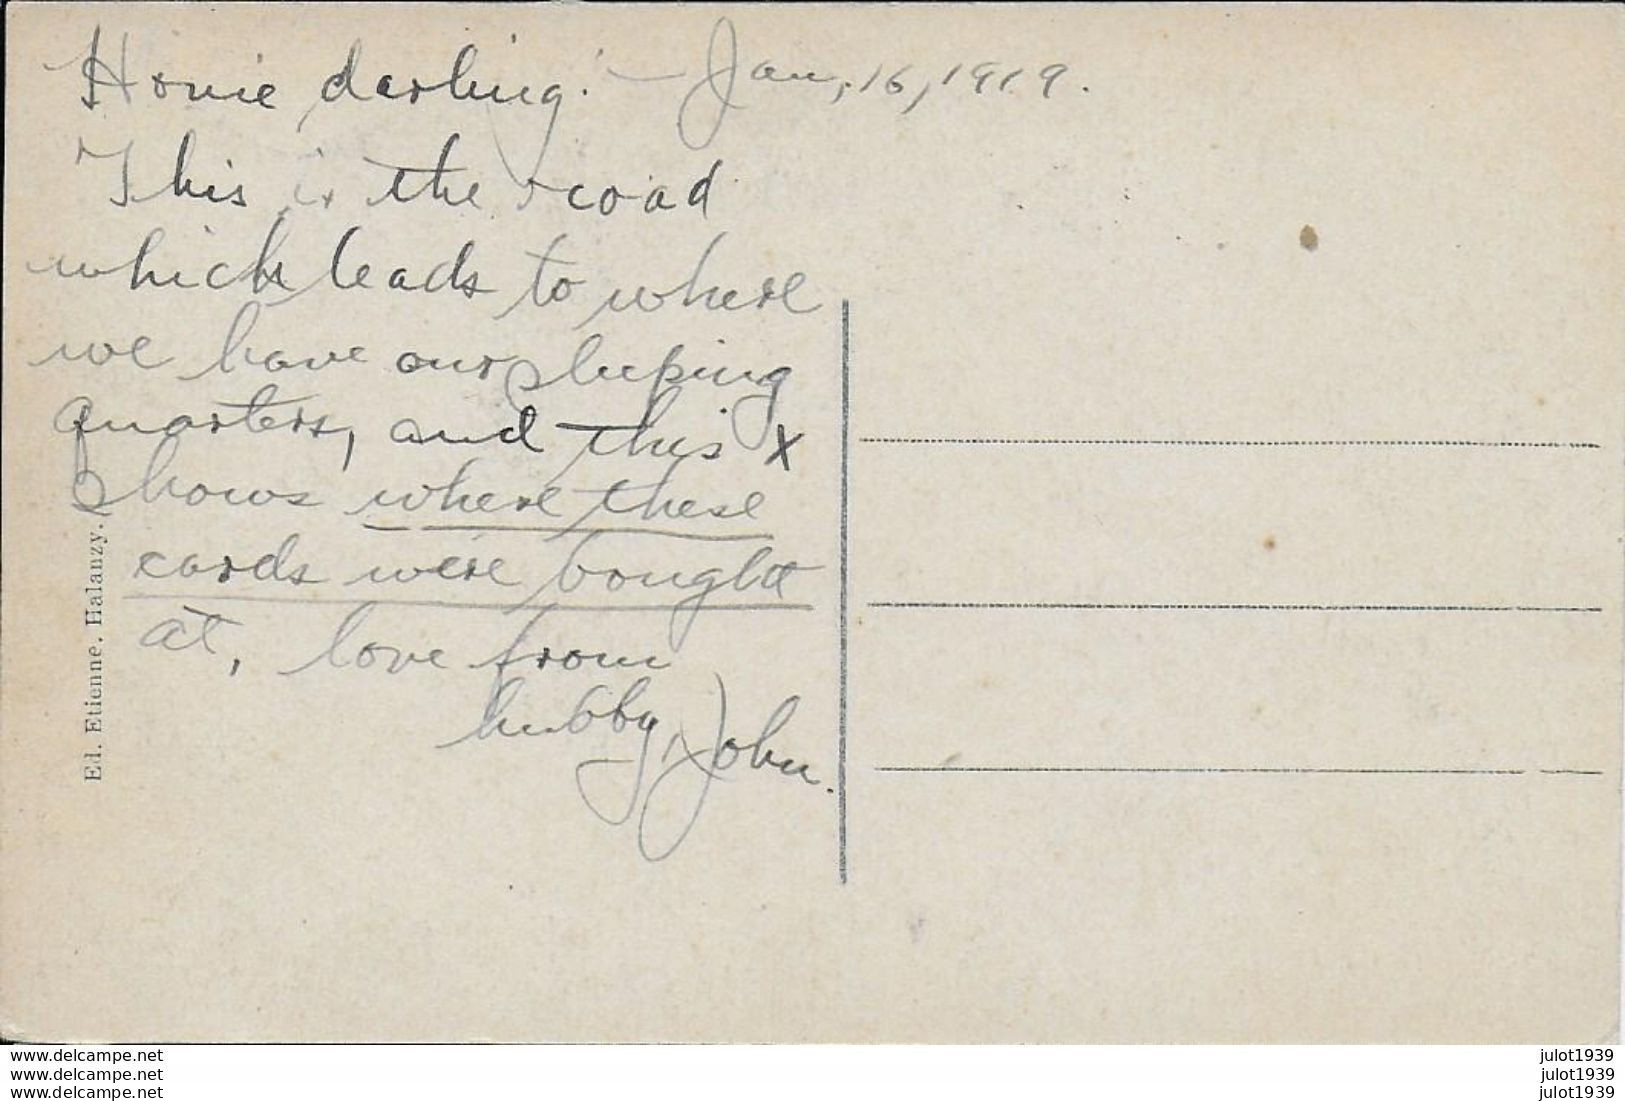 Honie darling! — Jan, 16, 1919.
This is the road
which leads to where
we have our sleeping
quarters, and this x
shows where these
cards were bought
at, love from
hubby, John.
Ed. Etienne. Halanzy.
www.delcampe.net
www.delcampe.net
www.delcampe.net
julot1939
julot1939
julot1939